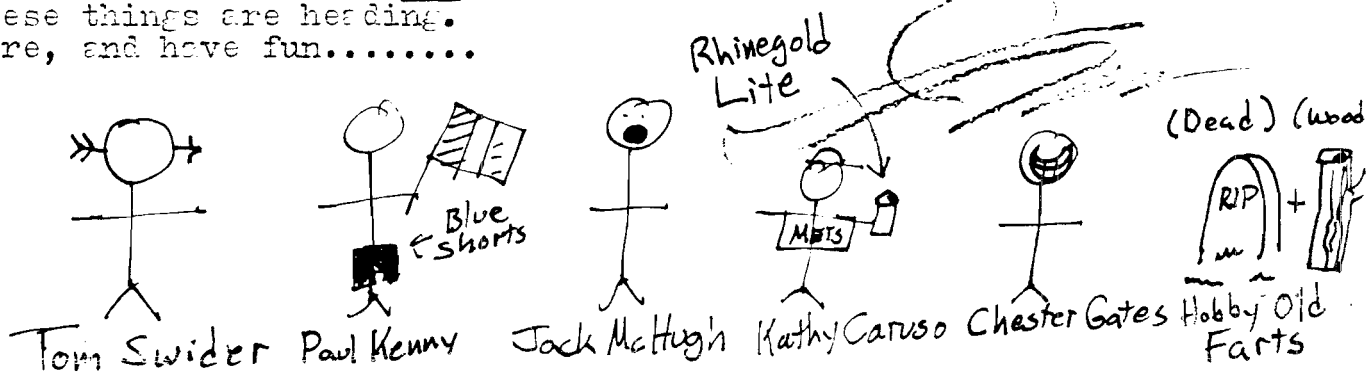 ese things are heading.
re, and have fun........
Rhinegold
Lite
(Dead) (Wood
Blue
Shorts
METS
RIP
+
Tom Swider Paul Kenny Jack McHugh Kathy Caruso Chester Gates Hobby Old
Farts